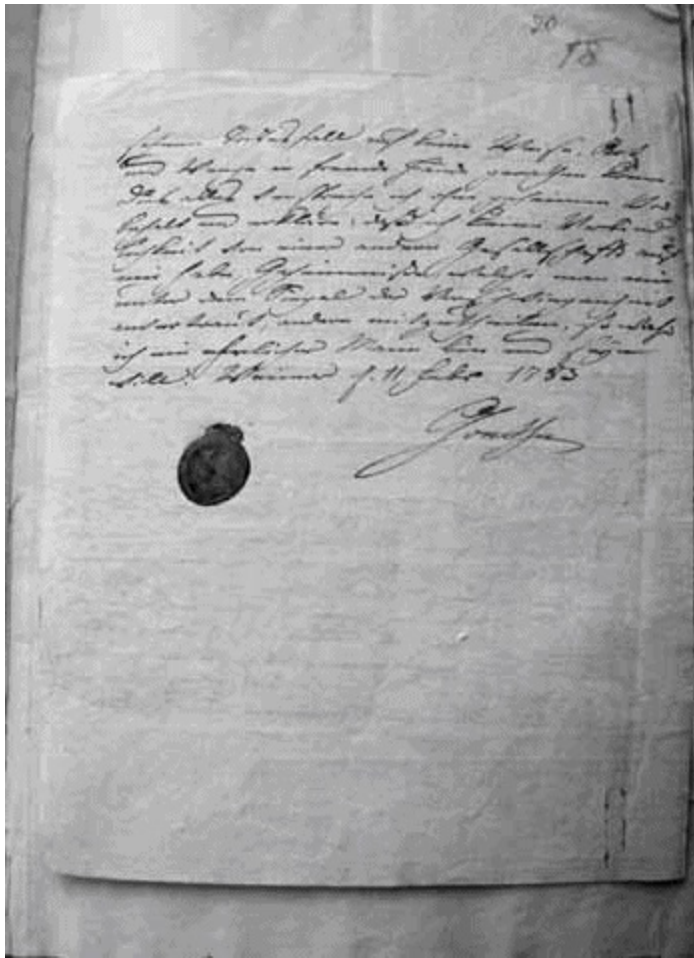 20
18
seinem Todesfall auf keine Weise,
und Wege in fremde Hände gerathen
Dies alles verspreche ich ohne geheimen Vor
behalt und erkläre, daß ich keine Verbind
lichkeit von einer andern Gesellschaft auf
mir habe Geheimnisse welche man mir
unter dem Siegel der Verschwiegenheit
anvertraut, andern mitzutheilen, so wahr
ich ein ehrlicher Mann bin und seyn
will. Weimar d. 11 Febr 1783
Goethe